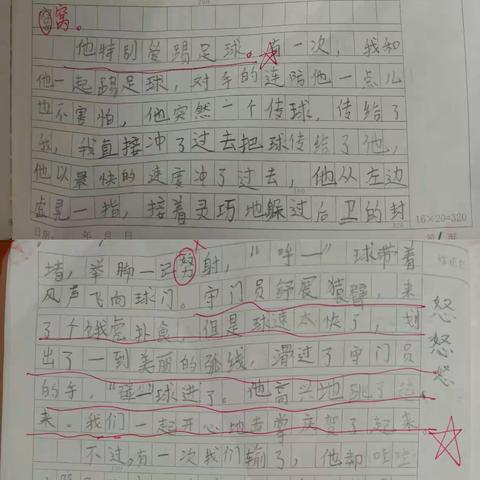 窝。
他特别爱踢足球。有一次，我和
他一起踢足球，对手的连陪他一点儿
也不害怕，他突然一个传球，传给了
我，我直接冲了过去把球传给了他，
他以最快的速度冲了过去，他从左边
虚晃一指，接着灵巧地躲过后卫的封
16×20=320
年 月 日
堵，举脚一记努射，“呯一”球带着
风声飞向球门。守门员舒展猿臂，来
了个饿虎扑食，但是球速太快了，划
出了一到美丽的弧线，滑过了守门员
的手，“一”球进了。他高兴地跳了起
来。我们一起开心地击掌庆贺了起来
不过，有一次我们输了，他却
怒
怒
怒